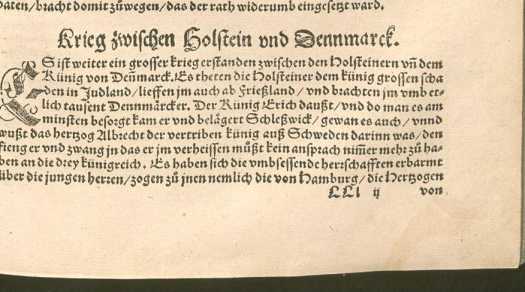 daten/bracht domit zůwegen/das der rath widerumb eingesetzt ward.
Krieg zwischen Holstein vnd Dennmarck.
ES ist weiter ein grosser krieg erstanden zwischen den Holsteinern vñ dem
Künig von Deñmarck. Es theten die Holsteiner dem künig grossen scha
den in Judland/lieffen jm auch ab Frießland/vnd brachten jm vmb et-
lich tausent Dennmärcker. Der Künig Erich daußt/vnd do man es am
minsten besorgt kam er vnd belägert Schleßwick/gewan es auch/vnnd
wußt das hertzog Albrecht der vertriben künig auß Schweden darinn was/den
fieng er vnd zwang jn das er jm verheissen můßt kein ansprach nim̃er mehr zů ha-
ben an die drey künigreich. Es haben sich die vmbsessende herrschafften erbarmt
über die jungen herren/zogen zů jnen nemlich die von Hamburg/die Hertzogen
LLl ij von